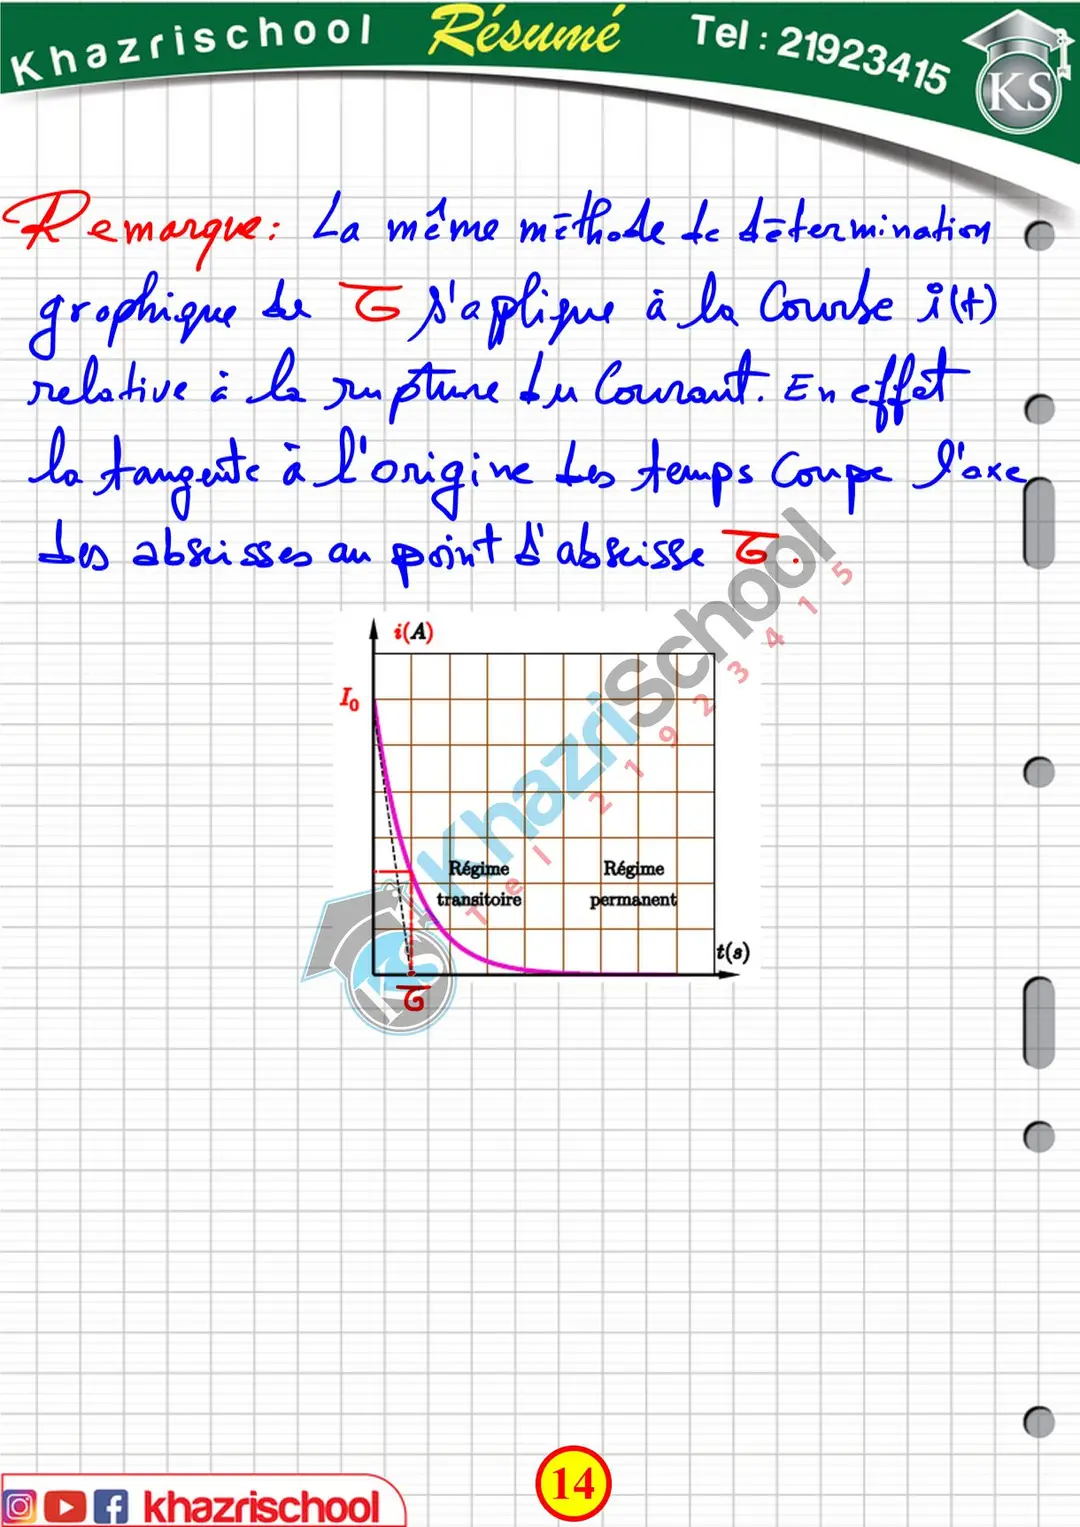 Khazrischool Résumé Tel : 21923415
KS
Remarque: La même méthode de détermination
graphique de τ s'applique à la Courbe i(t)
relative à la rupture du Courant. En effet
la tangente à l'origine des temps Coupe l'axe
des abscisses au point d'abscisse τ.
i(A)
I₀
Régime transitoire
Régime permanent
t(s)
τ
KhazriSchool
Tel 21923415
KS
14
khazrischool